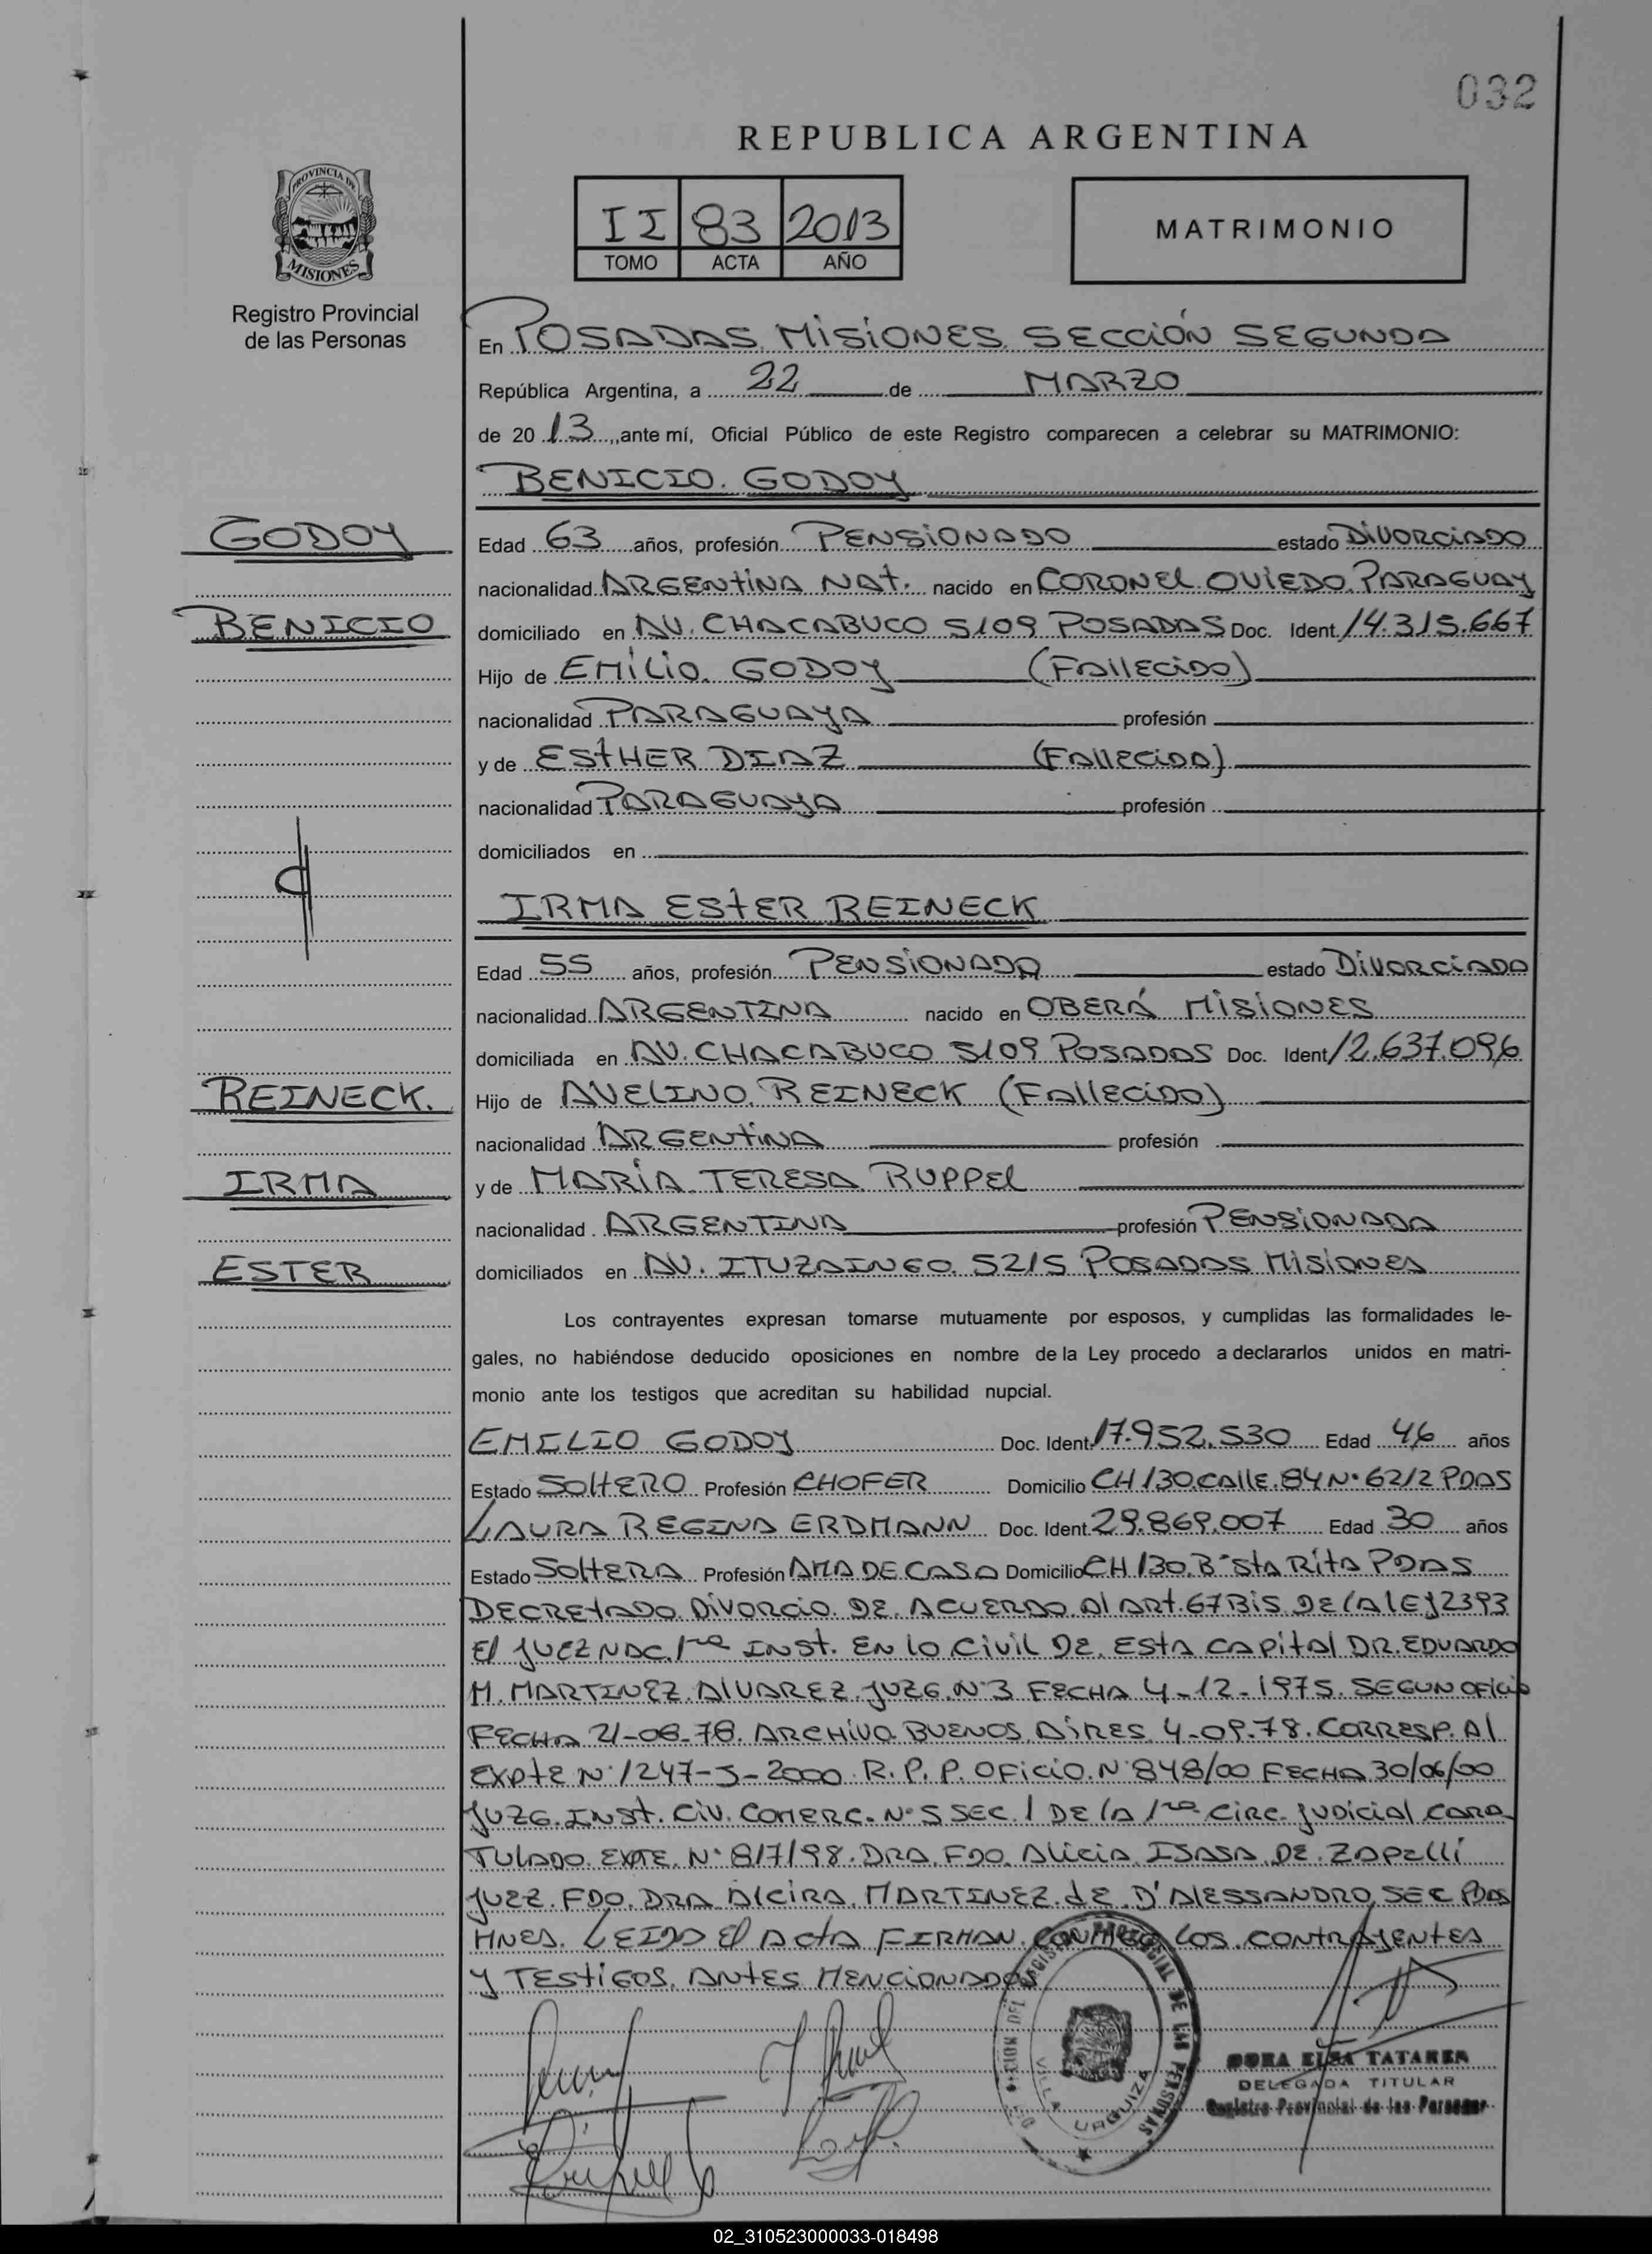 032
REPUBLICA ARGENTINA
PROVINCIA DE
MISIONES
Registro Provincial
de las Personas
II 83 2013
TOMO ACTA AÑO
MATRIMONIO
En POSADAS MISIONES SECCIÓN SEGUNDA
República Argentina, a 22 de MARZO
de 2013, ante mí, Oficial Público de este Registro comparecen a celebrar su MATRIMONIO:
BENICIO GODOY
GODOY
Edad 63 años, profesión PENSIONADO estado DIVORCIADO
nacionalidad ARGENTINA NAT. nacido en CORONEL OVIEDO PARAGUAY
BENICIO
domiciliado en AV. CHACABUCO 5109 POSADAS Doc. Ident. 14.315.667
Hijo de EMILIO GODOY (FALLECIDO)
nacionalidad PARAGUAYA profesión
y de ESTHER DIAZ (FALLECIDA)
nacionalidad PARAGUAYA profesión
domiciliados en
IRMA ESTER REINECK
Edad 55 años, profesión PENSIONADA estado DIVORCIADA
nacionalidad ARGENTINA nacido en OBERÁ MISIONES
domiciliada en AV. CHACABUCO 5109 POSADAS Doc. Ident 12.637.096
REINECK.
Hijo de AVELINO REINECK (FALLECIDO)
nacionalidad ARGENTINA profesión
IRMA
y de MARÍA TERESA RUPPEL
nacionalidad ARGENTINA profesión PENSIONADA
ESTER
domiciliados en AV. ITUZAINGO 5215 POSADAS MISIONES
Los contrayentes expresan tomarse mutuamente por esposos, y cumplidas las formalidades le-
gales, no habiéndose deducido oposiciones en nombre de la Ley procedo a declararlos unidos en matri-
monio ante los testigos que acreditan su habilidad nupcial.
EMILIO GODOY Doc. Ident. 17.952.530 Edad 46 años
Estado SOLTERO Profesión CHOFER Domicilio CH 130 CALLE 84 N° 6212 PDAS
LAURA REGINA ERDMANN Doc. Ident. 29.869.007 Edad 30 años
Estado SOLTERA Profesión AMA DE CASA Domicilio CH 130 B° STA RITA PDAS
DECRETADO DIVORCIO DE ACUERDO AL ART. 67 BIS DE LA LEY 2393
El JUEZ NAC. 1ra INST. EN LO CIVIL DE ESTA CAPITAL DR. EDUARDO
M. MARTINEZ ALVAREZ JUZG. N° 3 FECHA 4-12-1975. SEGUN OFICIO
FECHA 21-08-78. ARCHIVO BUENOS AIRES 4-09-78. CORRESP. Al
EXPTE N° 1247-J-2000 R.P.P. OFICIO N° 848/00 FECHA 30/06/00
JUZG. INST. CIV. COMERC. N° 5 SEC. 1 DE LA 1ra CIRC. JUDICIAL CARA-
TULADO EXPTE. N° 817/98. DRA. FDO. ALICIA ISASA DE ZAPELLI
JUEZ. FDO. DRA ALCIRA MARTINEZ de D'ALESSANDRO SEC PDAS
MNES. LEIDO El ACTA FIRMAN CONMIGO LOS CONTRAYENTES
Y TESTIGOS ANTES MENCIONADOS
REGISTRO PROVINCIAL DE LAS PERSONAS
VILLA URQUIZA
DELEGADA TITULAR
Registro Provincial de las Personas
02_310523000033-018498